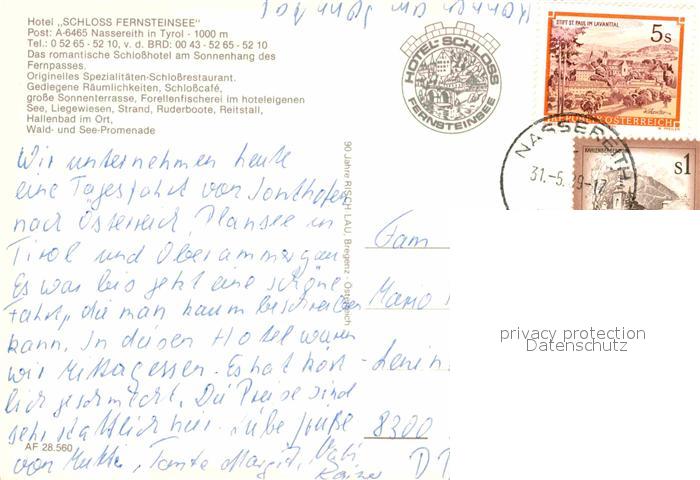 Hotel „SCHLOSS FERNSTEINSEE"
Post: A-6465 Nassereith in Tyrol - 1000 m
Tel.: 0 52 65 - 52 10, v. d. BRD: 00 43 - 52 65 - 52 10
Das romantische Schloßhotel am Sonnenhang des
Fernpasses.
Originelles Spezialitäten-Schloßrestaurant.
Gediegene Räumlichkeiten, Schloßcafé,
große Sonnenterrasse, Forellenfischerei im hoteleigenen
See, Liegewiesen, Strand, Ruderboote, Reitstall,
Hallenbad im Ort,
Wald- und See-Promenade
HOTEL-SCHLOSS
FERNSTEINSEE
STIFT ST. PAUL IM LAVANTTAL
5s
REPUBLIK ÖSTERREICH
NASSEREITH
31.-5.
s1
90 Jahre RISCH LAU, Bregenz - Österreich
Wir unternehmen heute
eine Tagesfahrt von Sonthofen
nach Österreich, Plansee in
Tirol und Oberammergau
Es war bis jetzt eine schöne
Fahrt, die man kaum beschreiben
kann. In diesen Hotel waren
wir Mittagessen. Es hat köst-
lich geschmeckt. Die Preise sind
sehr stattlich hier. Liebe Grüße
von Mutti, Tante Margit,
Fam
Mano
Lenin
8300
D
AF 28.560
privacy protection
Datenschutz